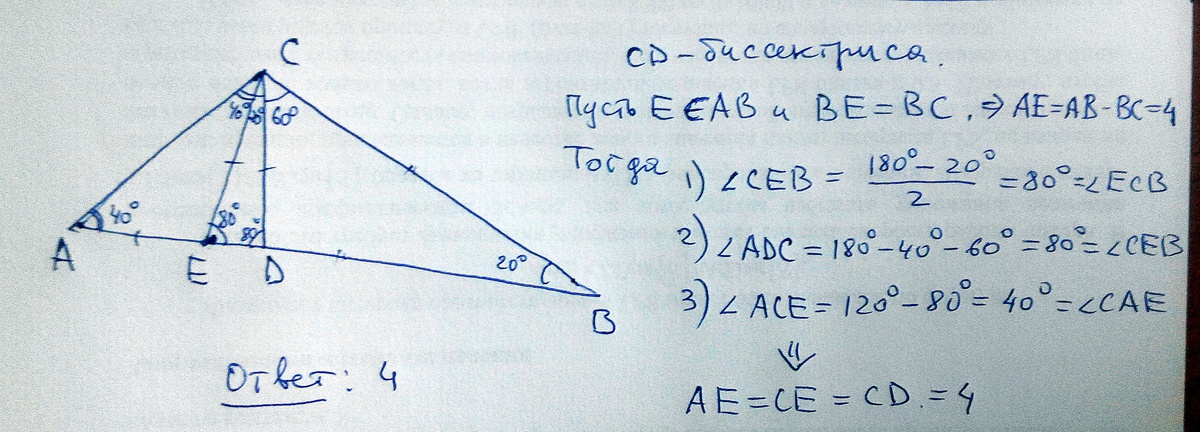 C
CD - биссектриса.
40° 20° 60°
Пусть E∈AB и BE = BC. ⇒ AE=AB-BC=4
Тогда
1) ∠CEB = (180° - 20°)/2 = 80° = ∠ECB
A 40° 80° 80° 20°
E D B
2) ∠ADC = 180° - 40° - 60° = 80° = ∠CEB
3) ∠ACE = 120° - 80° = 40° = ∠CAE
⇓
Ответ: 4
AE = CE = CD. = 4